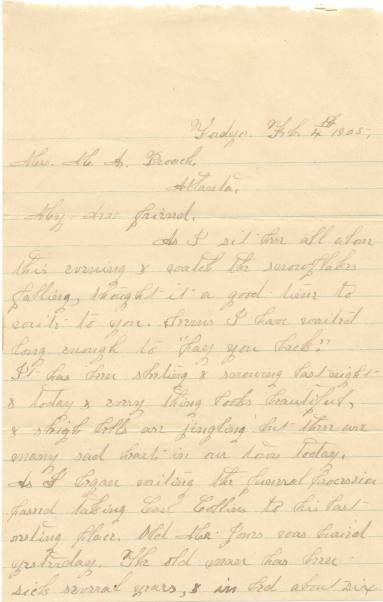 Fordyce Feb. 4th 1905,
Mr. M. A. Broach,
Atlanta,
My dear friend,
As I sit here all alone
this evening & watch the snowflakes
falling, thought it a good time to
write to you. Seems I have waited
long enough to "pay you back."
It has been sleeting & snowing last night
& today & every thing looks beautiful,
& sleigh bells are jingling but there are
many sad hearts in our town today.
As I began writing the funeral procession
passed taking Earl Collins to his last
resting place. Old Mr. Jones was buried
yesterday. The old man has been
sick several years, & in bed about six